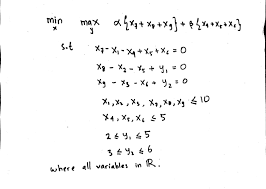 min max α{x₇ + x₈ + x₉} + β{x₄ + x₅ + x₆}
x y
s.t x₇ - x₁ - x₄ + x₅ + x₆ = 0
x₈ - x₂ - x₅ + y₁ = 0
x₉ - x₃ - x₆ + y₂ = 0
x₁, x₂, x₃, x₇, x₈, x₉ ≤ 10
x₄, x₅, x₆ ≤ 5
2 ≤ y₁ ≤ 5
3 ≤ y₂ ≤ 6
where all variables in ℝ.